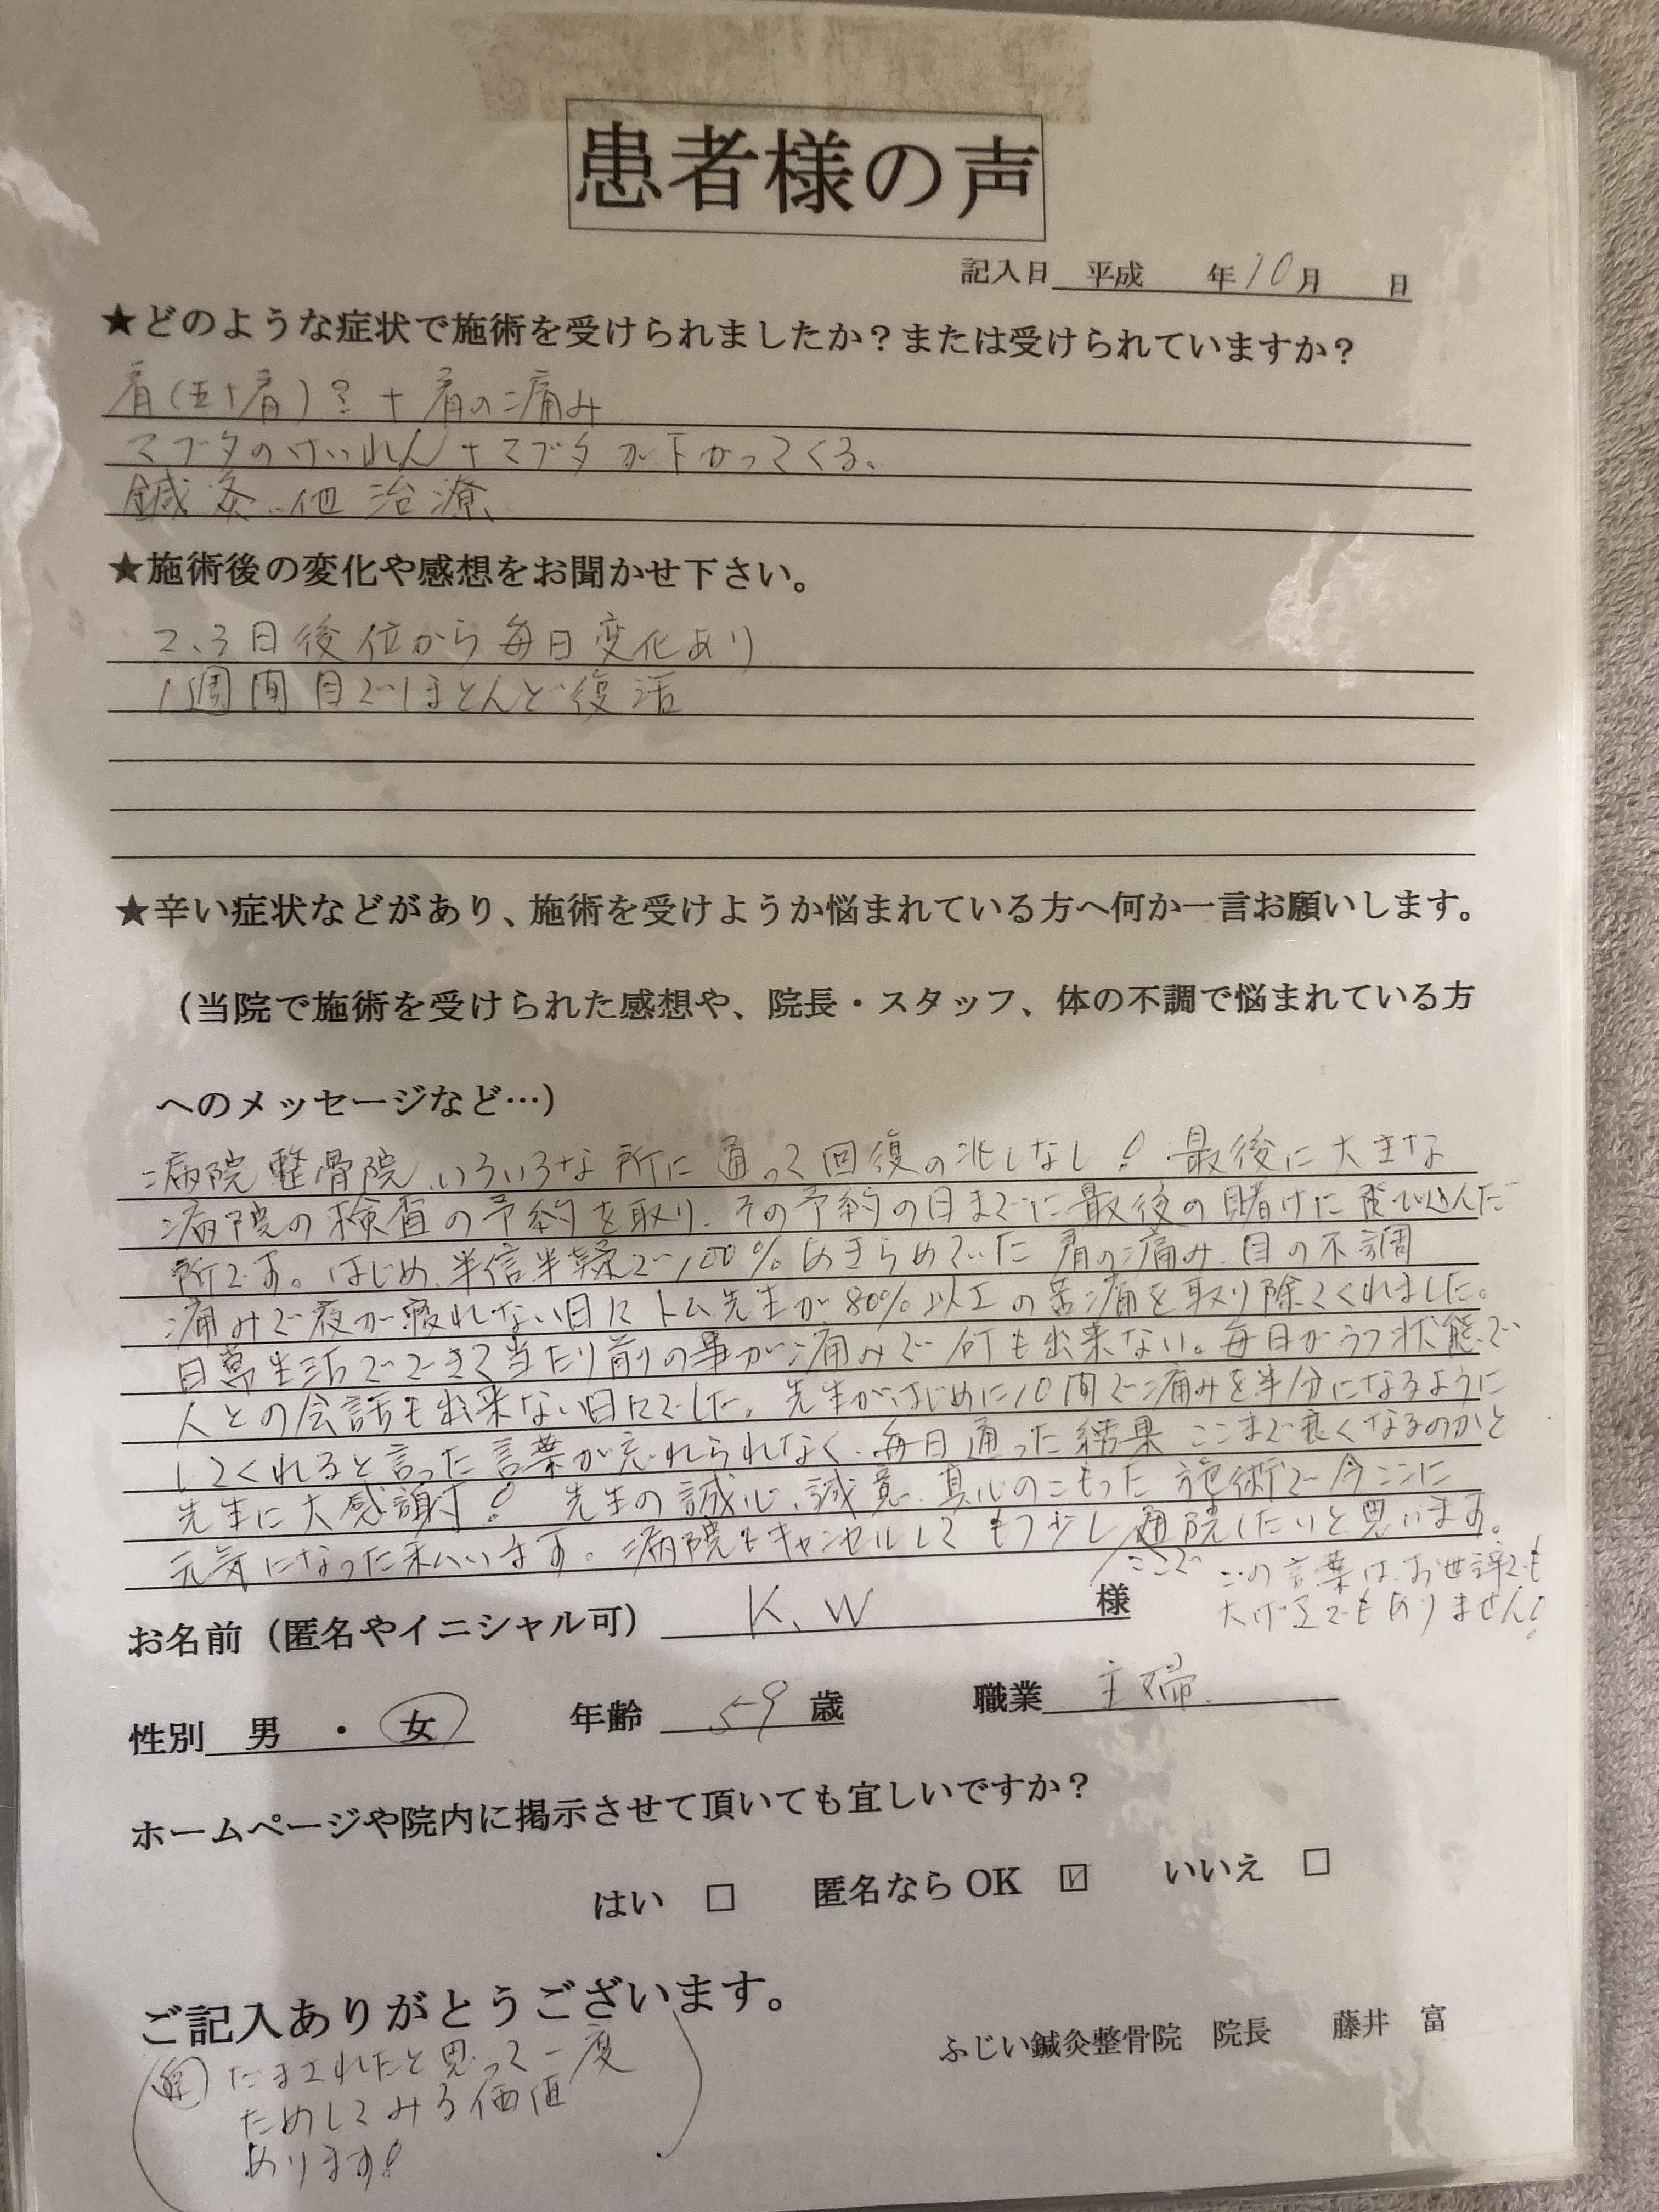 患者様の声
記入日 平成 年10月 日
★どのような症状で施術を受けられましたか？または受けられていますか？
肩(五十肩)? + 肩の痛み
マブタのけいれん + マブタが下がってくる。
鍼灸、他 治療、
★施術後の変化や感想をお聞かせ下さい。
2、3日後位から毎日変化あり
1週間目でほとんど復活
★辛い症状などがあり、施術を受けようか悩まれている方へ何か一言お願いします。
（当院で施術を受けられた感想や、院長・スタッフ、体の不調で悩まれている方
へのメッセージなど…）
病院 整骨院、いろいろな所に通って回復の兆しなし! 最後に大きな
病院の検査の予約を取り、その予約の日までに最後の賭けに飛び込んだ
所です。はじめ、半信半疑で100%あきらめていた肩の痛み、目の不調
痛みで夜が寝れない日にトム先生が80%以上の苦痛を取り除てくれました。
日常生活でできて当たり前の事が痛みで何も出来ない。毎日がうつ状態で
人との会話も出来ない日々でした。先生がはじめに10日間で痛みを半分になるように
してくれると言った言葉が忘れられなく、毎日通った結果ここまで良くなるのかと
先生に大感謝! 先生の誠心、誠意、真心のこもった施術で今ここに
元気になった私がいます。病院をキャンセルしてもう少しここで通院したいと思います。
この言葉はお世辞でも
大げさでもありません!
お名前（匿名やイニシャル可） K、W 様
性別 男 ・ 女 年齢 59 歳 職業 主婦
ホームページや院内に掲示させて頂いても宜しいですか？
はい □ 匿名なら OK ☑ いいえ □
ご記入ありがとうございます。
ふじい鍼灸整骨院 院長 藤井 富
だまされたと思って一度
ためしてみる価値
あります!